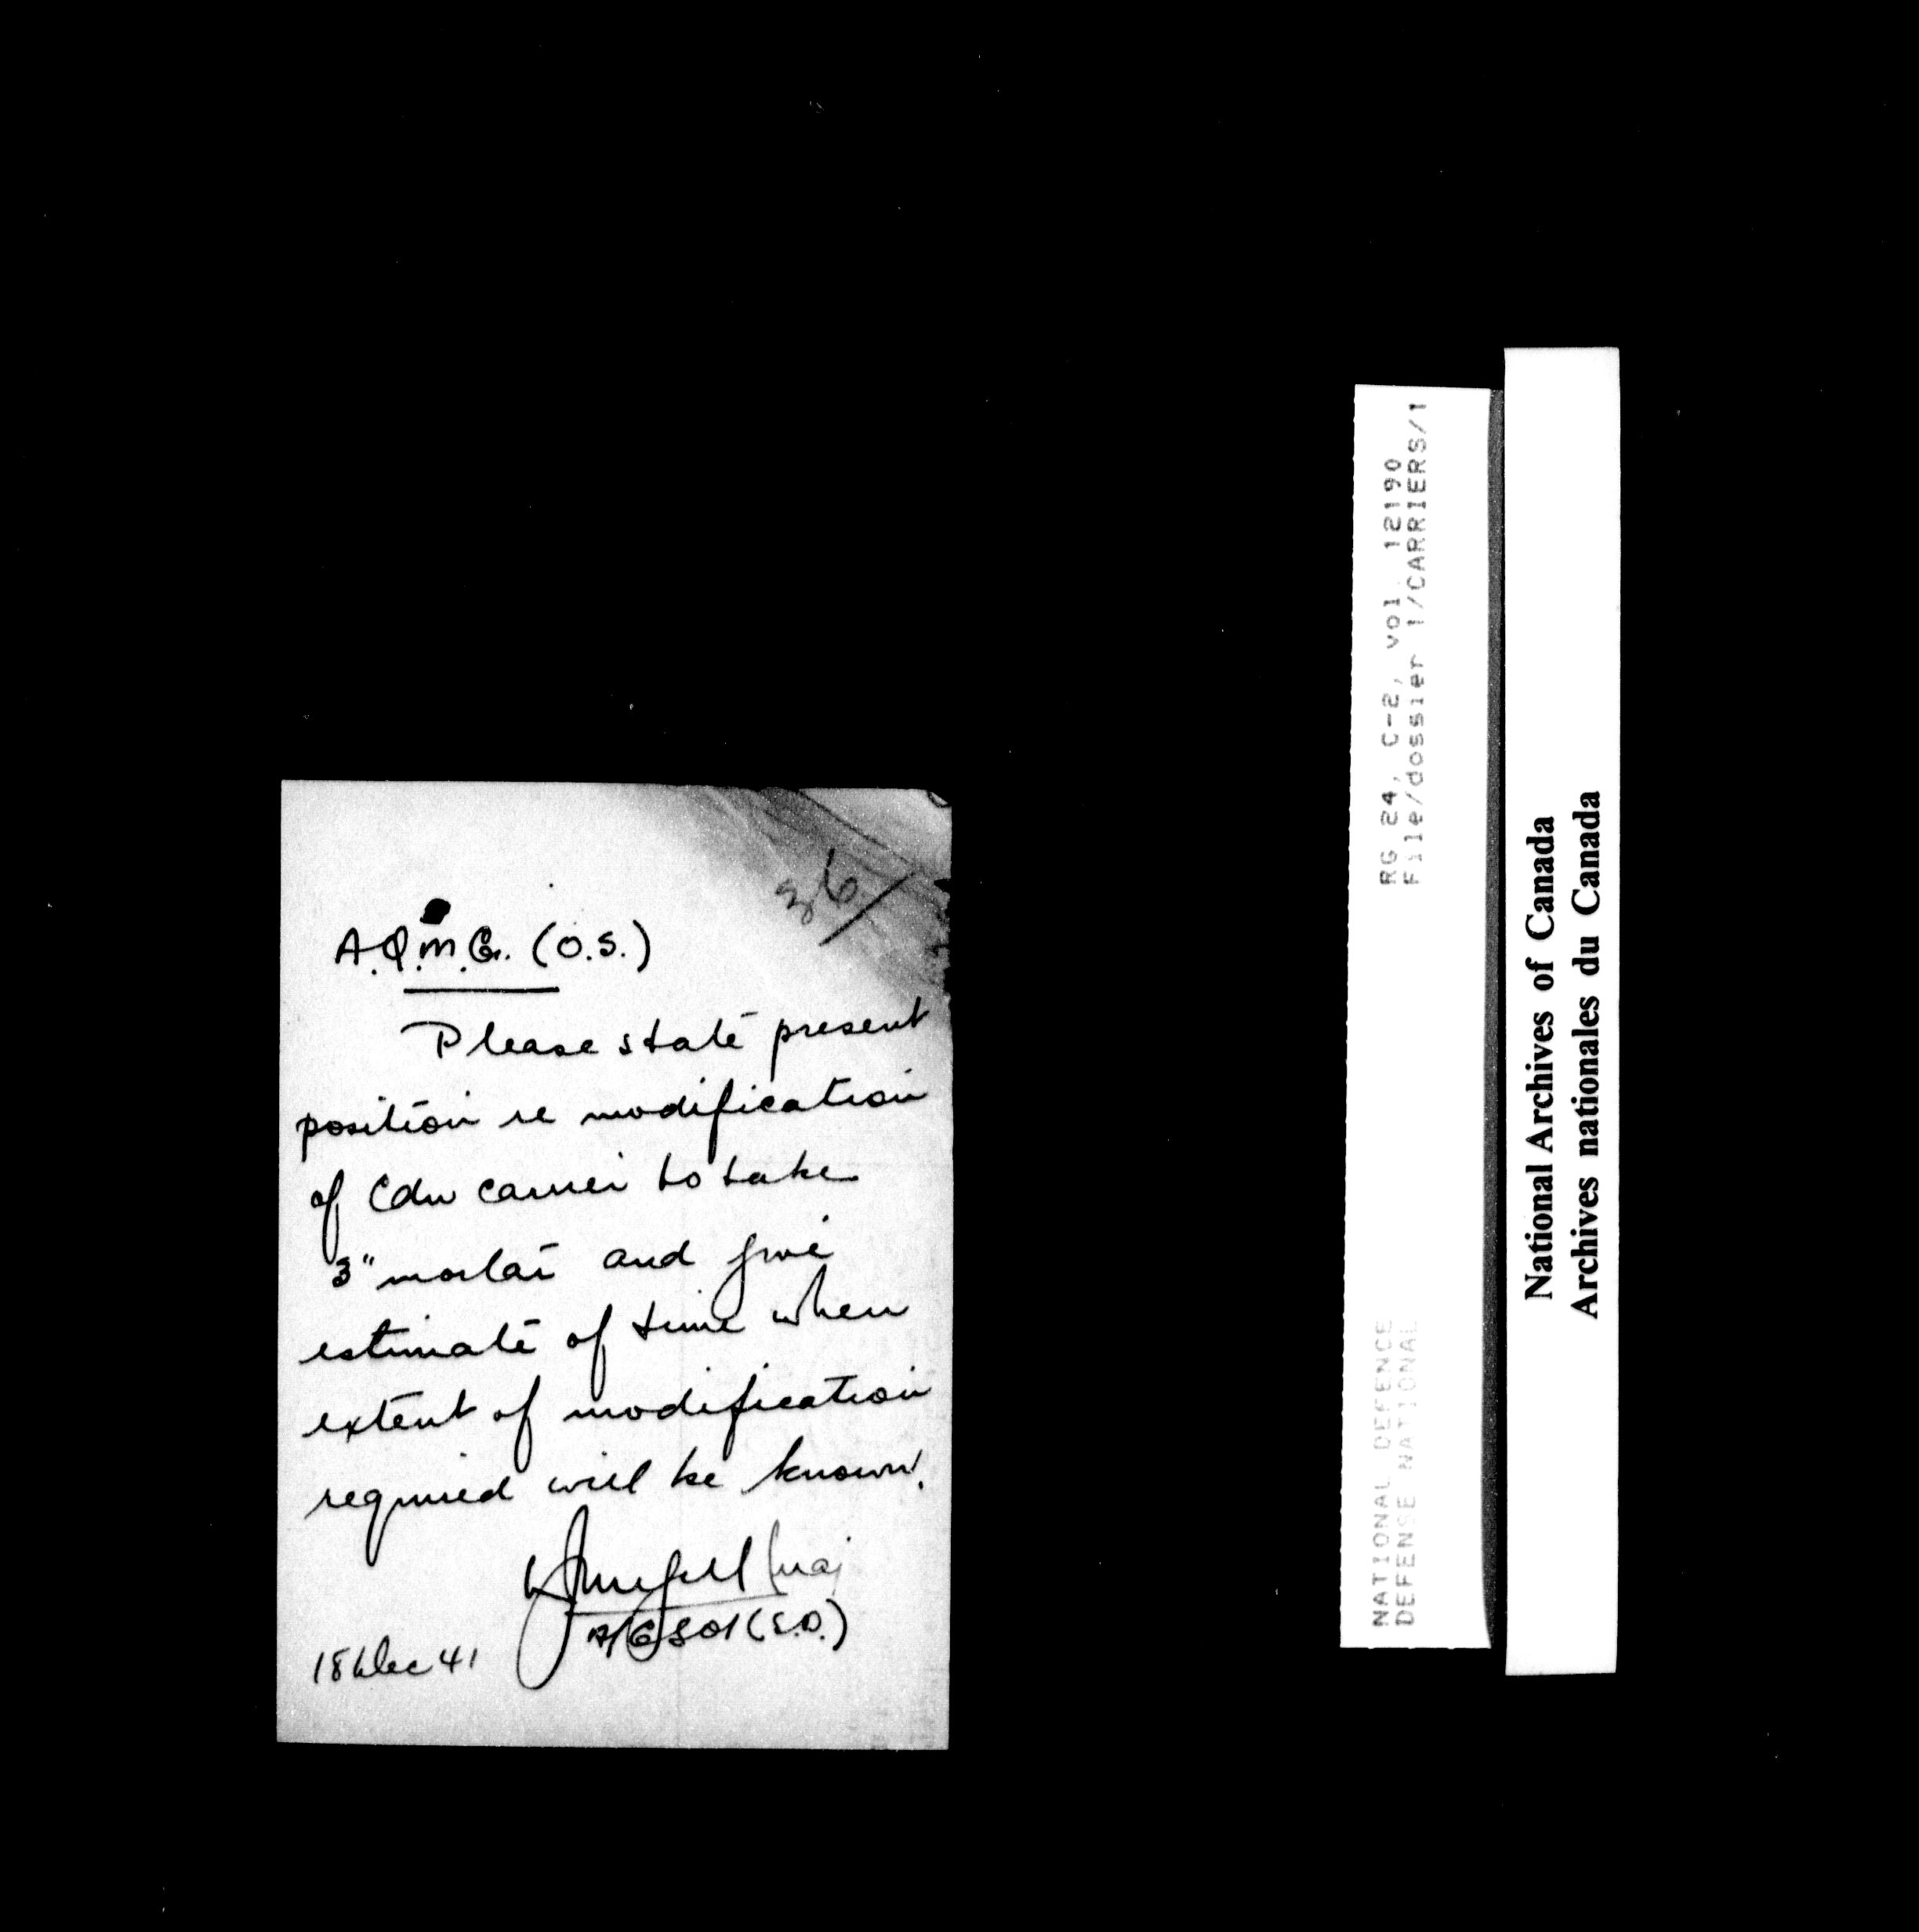 36
A.Q.M.G. (O.S.)
Please state present
position re modification
of Cdn carrier to take
3" mortar and give
estimate of time when
extent of modification
required will be known.
Maj
A/GSO1 (S.D.)
18 Dec 41
RG 24, C-2, vol. 12190
File/dossier 1/CARRIERS/1
NATIONAL DEFENCE
DEFENSE NATIONAL
National Archives of Canada
Archives nationales du Canada